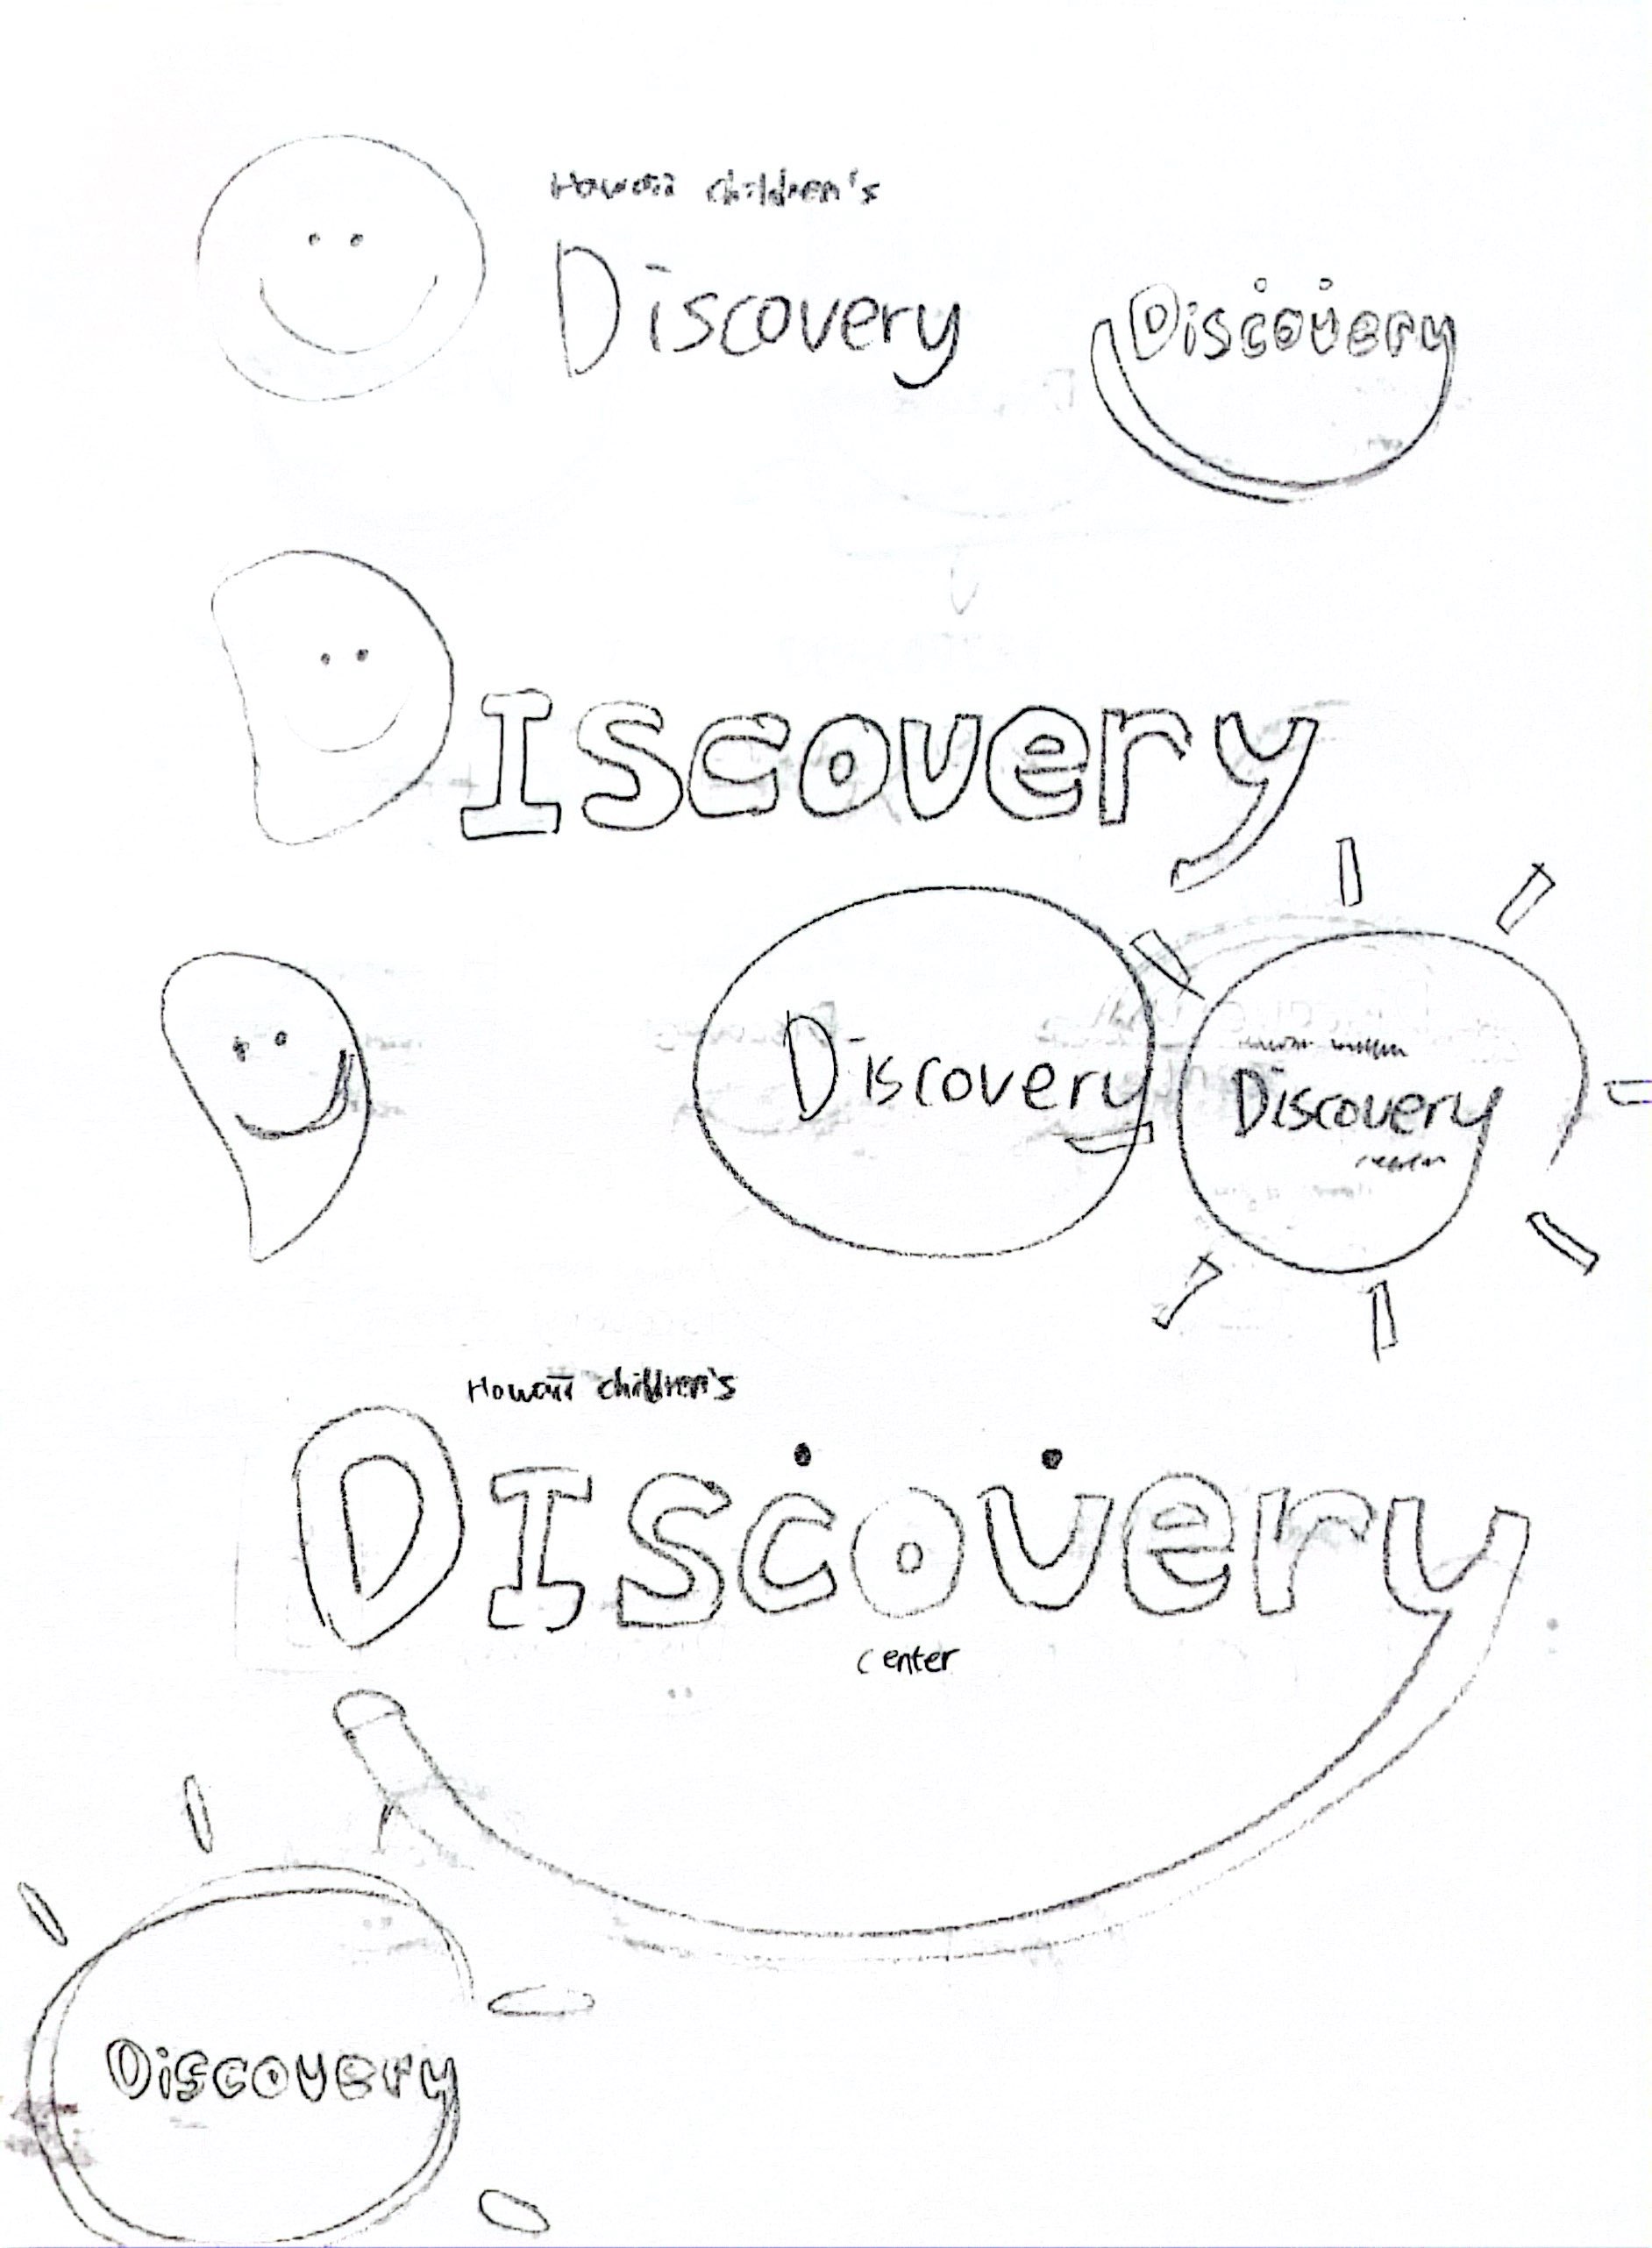 Hawaii children's
Discovery
Discovery
DIscovery
Discovery
Discovery
Hawaii children's
DIscovery
center
Discovery